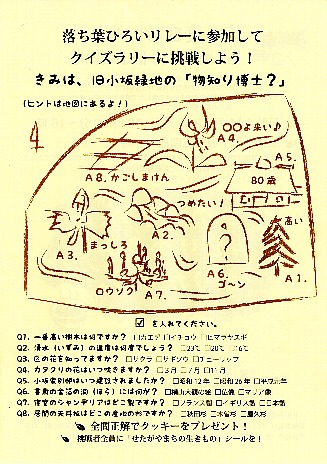 落ち葉ひろいリレーに参加して
クイズラリーに挑戦しよう！
きみは、旧小坂緑地の「物知り博士？」
(ヒントは地図にあるよ！)
○○よ来い♪
A4.
A5.
A8. かごしまけん
80歳
つめたい！
高い
A2.
まっしろ
A3.
？
ロウソク
A7.
A6.
ゴ～ン
A1.
☑ を入れてください。
Q1. 一番高い樹木は何ですか？ □カエデ □イチョウ □ヒマラヤスギ
Q2. 湧水（いずみ）の温度は何度でしょう？ □23℃ □20℃ □16℃
Q3. この花を知ってますか？ □サクラ □サギソウ □チューリップ
Q4. カタクリの花はいつ咲きますか？ □3月 □7月 □11月
Q5. 小坂家別邸はいつ建設されましたか？ □昭和12年 □昭和26年 □平成元年
Q6. 書斎の言葉の
Q7. 寝室のシャンデリアはどこ製ですか？ □フランス製 □イギリス製 □日本製
Q8. 居間の天井板はどこの産地の杉ですか？ □秋田杉 □木曽杉 □屋久杉
全問正解でクッキーをプレゼント！
挑戦者全員に「せたがやまちの生きもの」シールを！